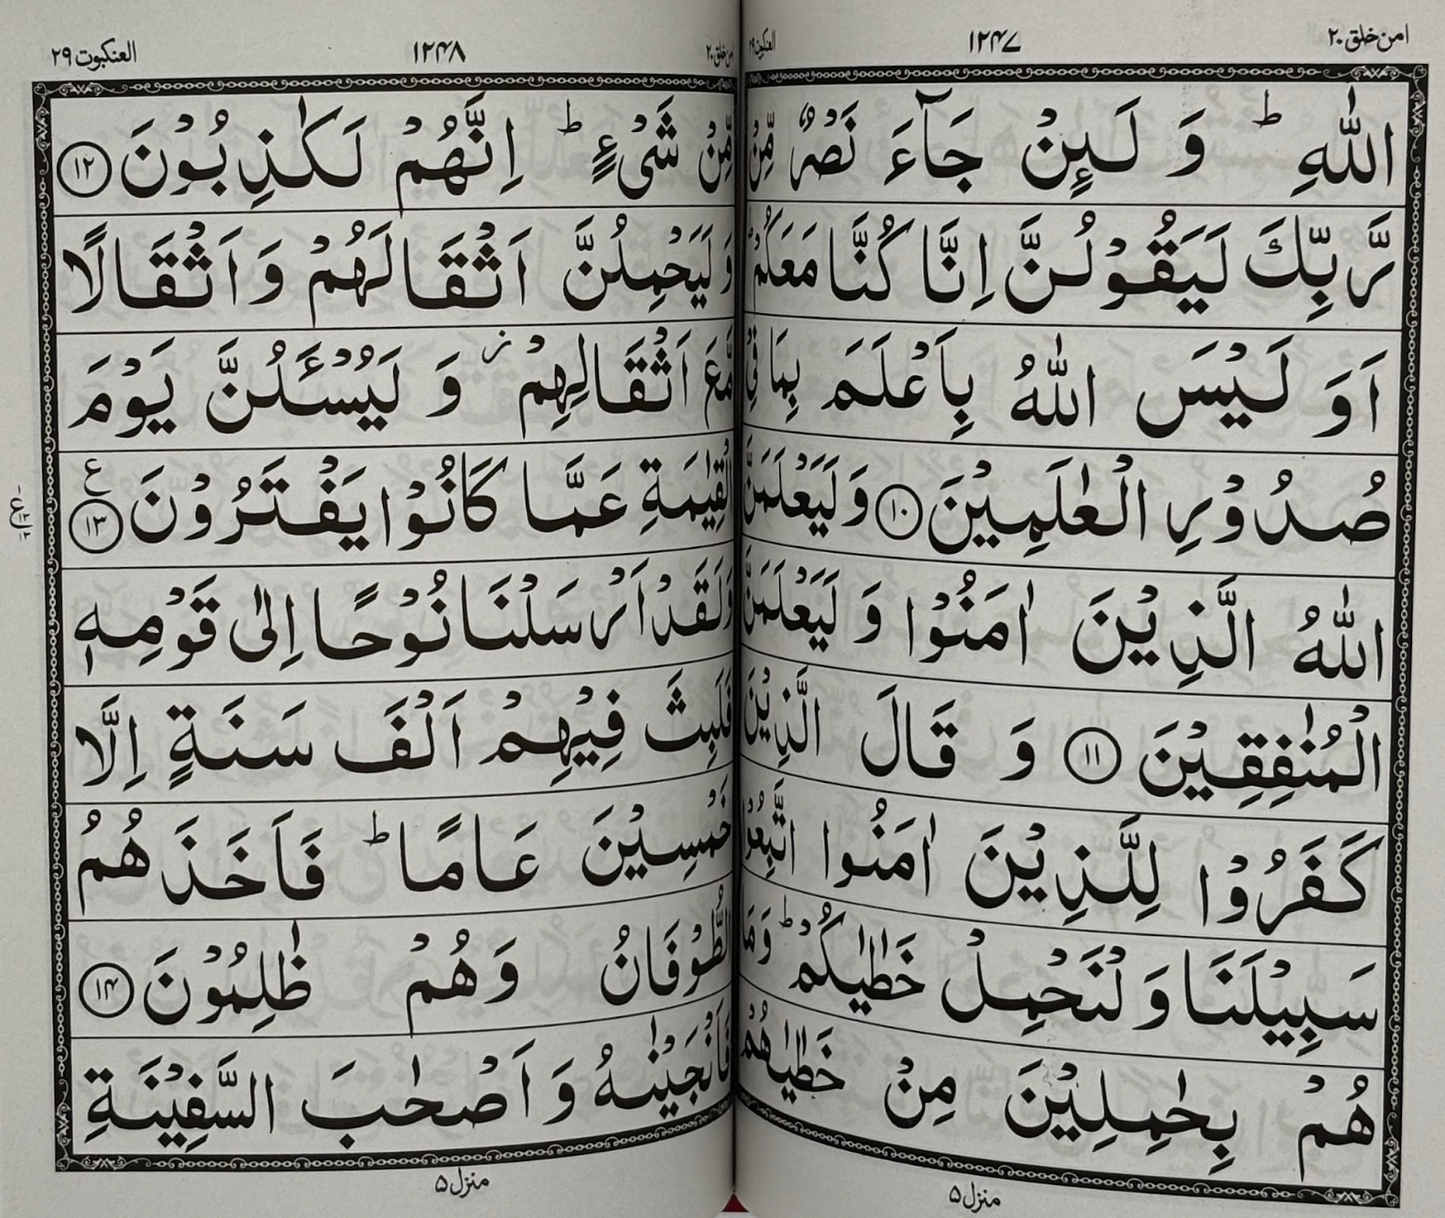 امن خلق ٢٠
١٢٤٧
العنكبوت ٢٩
اللّٰهِ ؕ وَ لَىِٕنْ جَآءَ نَصْرٌ مِّنْ
رَّبِّكَ لَيَقُوْلُنَّ اِنَّا كُنَّا مَعَكُمْ ؕ
اَوَ لَيْسَ اللّٰهُ بِاَعْلَمَ بِمَا فِيْ
صُدُوْرِ الْعٰلَمِيْنَ ١٠ وَ لَيَعْلَمَنَّ
اللّٰهُ الَّذِيْنَ اٰمَنُوْا وَ لَيَعْلَمَنَّ
الْمُنٰفِقِيْنَ ١١ وَ قَالَ الَّذِيْنَ
كَفَرُوْا لِلَّذِيْنَ اٰمَنُوا اتَّبِعُوْا
سَبِيْلَنَا وَ لْنَحْمِلْ خَطٰيٰكُمْ ؕ وَ مَا
هُمْ بِحٰمِلِيْنَ مِنْ خَطٰيٰهُمْ
منزل ٥
امن خلق ٢٠
١٢٤٨
العنكبوت ٢٩
مِّنْ شَيْءٍ ؕ اِنَّهُمْ لَكٰذِبُوْنَ ١٢
وَ لَيَحْمِلُنَّ اَثْقَالَهُمْ وَ اَثْقَالًا
مَّعَ اَثْقَالِهِمْ ز وَ لَيُسْـَٔلُنَّ يَوْمَ
الْقِيٰمَةِ عَمَّا كَانُوْا يَفْتَرُوْنَ ١٣ ع
وَ لَقَدْ اَرْسَلْنَا نُوْحًا اِلٰى قَوْمِهٖ
فَلَبِثَ فِيْهِمْ اَلْفَ سَنَةٍ اِلَّا
خَمْسِيْنَ عَامًا ؕ فَاَخَذَهُمُ
الطُّوْفَانُ وَ هُمْ ظٰلِمُوْنَ ١٤
فَاَنْجَيْنٰهُ وَ اَصْحٰبَ السَّفِيْنَةِ
منزل ٥